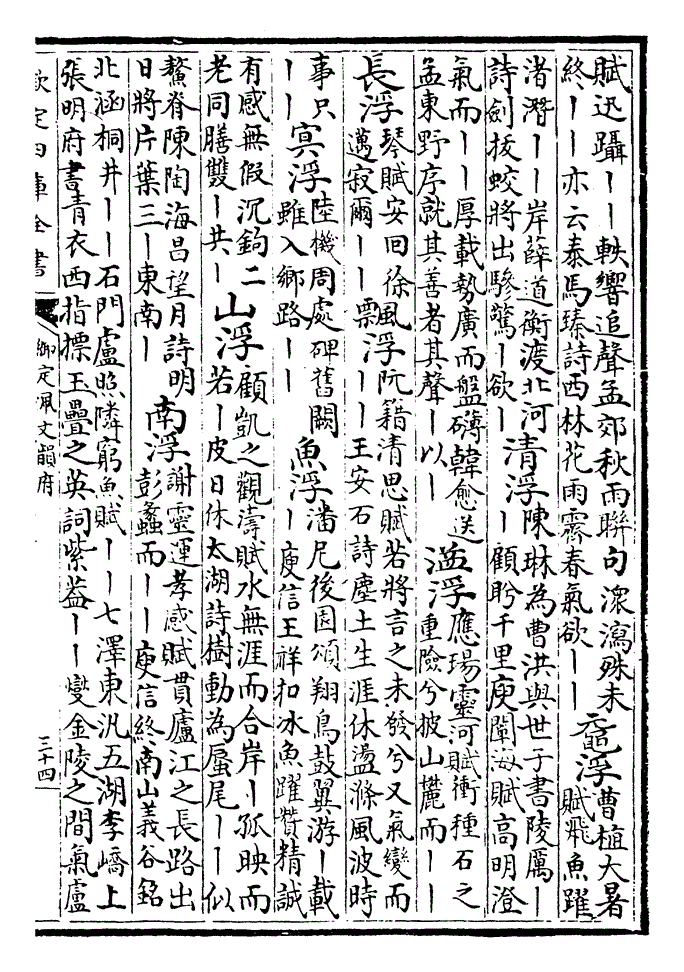 賦迅躡丨丨軼響追聲孟郊秋雨聯句瀼瀉殊未
終丨丨亦云泰馬臻詩西林花雨霽春氣欲丨丨
黿浮
曹植大暑
賦飛魚躍
渚潛丨丨岸薛道衡渡北河
詩劍拔蛟將出驂驚丨欲丨
清浮
陳琳為曹洪與世子書陵厲丨
丨顧盻千里庾闡海賦高明澄
氣而丨丨厚載勢廣而盤礴韓愈送
孟東野序就其善者其聲丨以丨
溢浮
應瑒靈河賦衝種石之
重險兮披山麓而丨丨
長浮
琴賦安回徐
邁寂爾丨丨
飄浮
阮籍清思賦若將言之未發兮又氣變而
丨丨王安石詩塵土生涯休盪滌風波時
事只
丨丨
冥浮
陸機周處碑舊闕
雖入鄉路丨丨
魚浮
潘尼後園頌翔鳥鼓翼游丨載
丨庾信王祥扣冰魚躍贊精誠
有感無假沉鉤二
老同膳雙丨共丨
山浮
顧凱之觀濤賦水無涯而合岸丨孤映而
若丨皮日休太湖詩樹動為蜃尾丨丨似
鰲脊陳陶海昌望月詩明
日將片葉三丨東南丨
南浮
謝靈運孝感賦貫廬江之長路出
彭蠡而丨丨庾信終南山義谷銘
北涵桐井丨丨石門盧照隣窮魚賦丨丨七澤東汎五湖李嶠上
張明府書青衣西指摽玉壘之英詞紫葢丨丨燮金陵之間氣盧
欽定四庫全書
御定佩文韻府
三十四